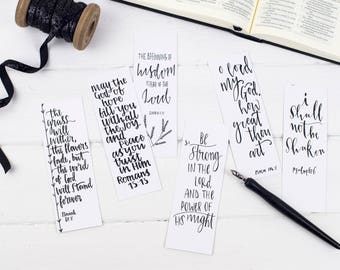 the
grass
will
wither,
the flowers
fade, but
the word
of God
will stand
forever
may the
God of
hope
fill you
with all
the joy
and
peace
as you
trust
in Him
Romans
15:13
THE BEGINNING OF
wisdom
Lord
BE
Strong
IN THE
LORD
AND THE
POWER OF
HIS might
O Lord
my
God,
how
great
thou
art
i
shall
not be
shaken